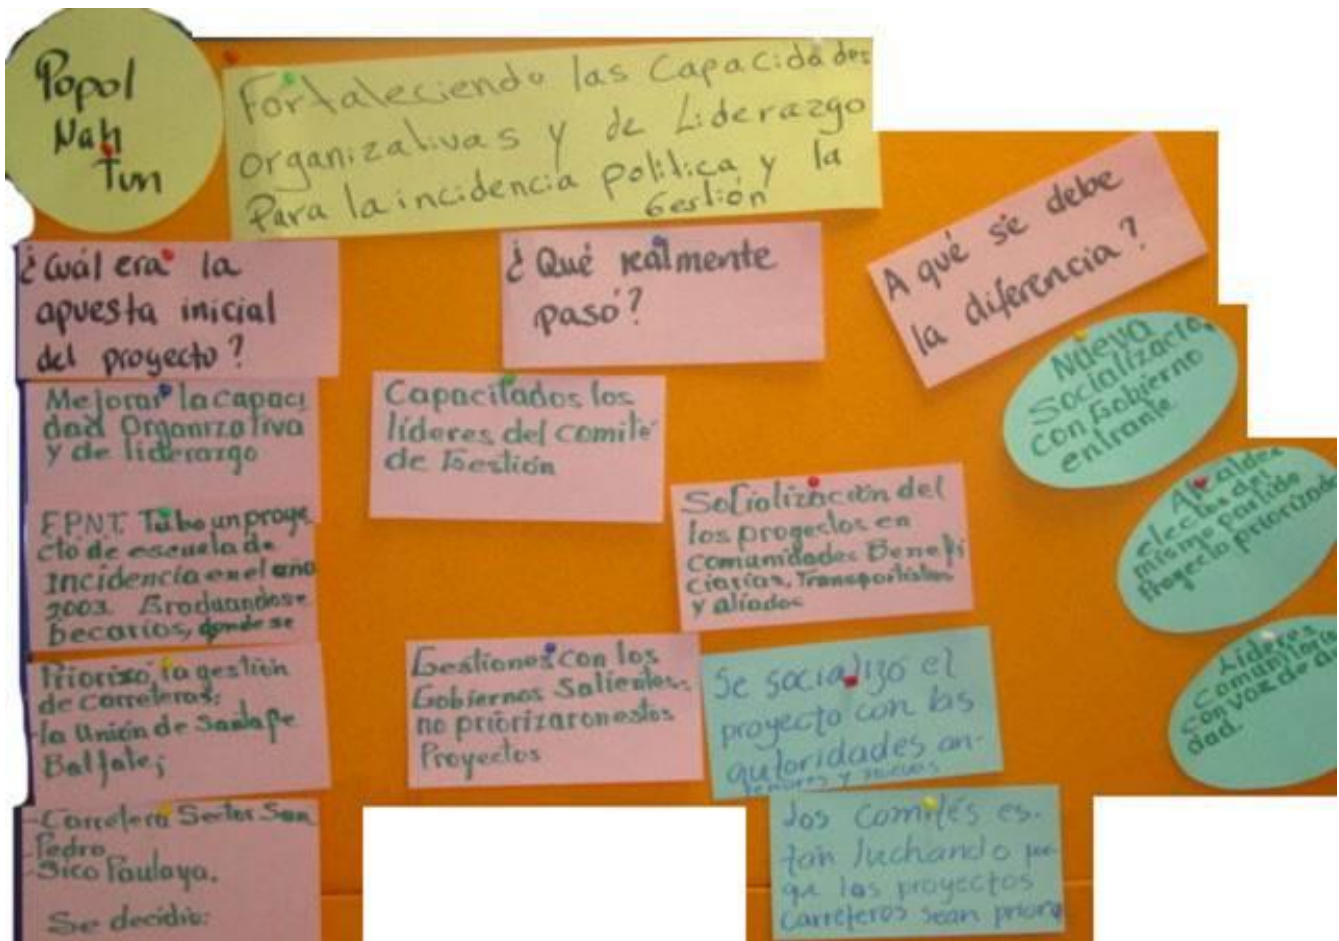 Popol
Nah
Tun
Fortaleciendo las Capacidades
organizativas y de Liderazgo
Para la incidencia política y la
Gestión
¿Cuál era la
apuesta inicial
del proyecto?
Mejorar la capaci
dad Organizativa
y de liderazgo
F.P.N.T. Tubo un proye
cto de escuela de
incidencia en el año
2003. Graduandose
becarios, donde se
Priorizó, la gestión
de carreteras:
-la Unión de Santa fe
Balfate;
-Carretera Sector San
Pedro
-Sico Paulaya.
Se decidio:
¿Qué realmente
pasó?
Capacitados los
líderes del comité
de Gestión
Socialización del
los proyectos en
comunidades Benefi
ciarias, Transportistas
y aliados
Gestiones con los
Gobiernos Salientes.
no priorizaron estos
Proyectos
Se socializó el
proyecto con las
autoridades an-
teriores y nuevas
Los Comités es-
tán luchando
que los proyectos
carreteros sean
A qué se debe
la diferencia?
Nueva
Socialización
con Gobierno
entrante
Alcaldes
electos del
mismo partido
Proyecto priorizado
Líderes
con voz de
dad.